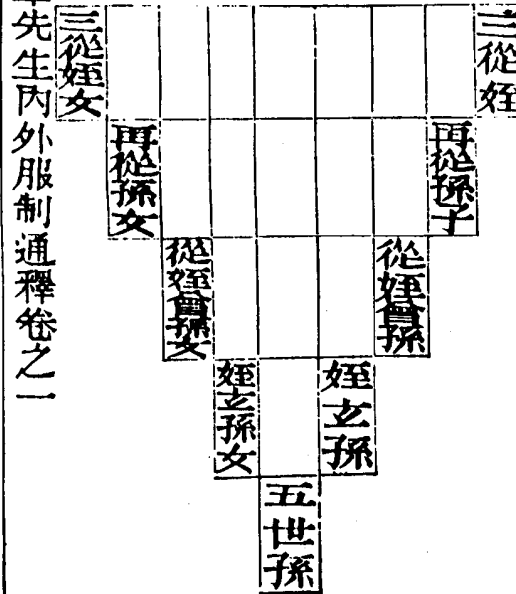 三從姪
再從孫子
從姪曾孫
姪玄孫
五世孫
姪玄孫女
從姪曾孫女
再從孫女
三從姪女
先生內外服制通釋卷之一